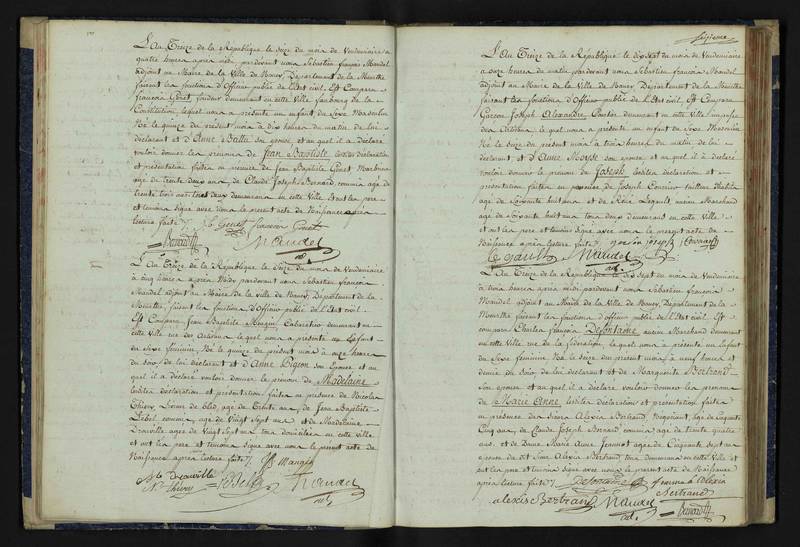 L'An Treize de la République le seize du mois de Vendémiaire a
quatre heures après midi pardevant nous Sébastien françois Mandel
adjoint au Maire de la Ville de Nancy, Département de la Meurthe
faisant les fonctions d'Officier public de l'Etat civil. Est Comparu
françois Goret, fondeur demeurant en cette Ville faubourg de la
Constitution, lequel nous a présenté un enfant du Sexe Masculin
Né le quinze du présent mois à dix heures du matin de lui
déclarant et d'Anne son épouse, et auquel il a déclaré
vouloir donner les prénoms de Jean Baptiste lesdites déclaration
et présentation faites en présence de Jean Baptiste
âgé de trente deux ans, de Claude Joseph Bernard, commis âgé de
trente trois ans tous deux demeurans en cette Ville Et ont les père
et témoins signé avec nous le présent acte de Naissance après
lecture faite
françois
Bernard Mandel
adj.
L'An Treize de la République le Seize du mois de Vendémiaire
à cinq heures après Midy pardevant nous Sébastien françois
Mandel adjoint au Maire de la ville de Nancy, Département de la
Meurthe, faisant les fonctions d'Officier public de l'Etat civil.
Est Comparu Jean Baptiste Mangin, Cabaretier demeurant en
cette Ville rue des Artisans, lequel nous a présenté un Enfant
du Sexe féminin, Né le quinze du présent mois à onze heures
du soir de lui déclarant et d'Anne Pigeon son Epouse et au
quel il a déclaré vouloir donner le prénom de Madelaine
lesdites déclaration et présentation faites en présence de Nicolas
Thiery de bled, âgé de Trente ans, de Jean Baptiste
commis, âgé de Vingt Sept ans et de Madelaine
âgée de Vingt Sept ans tous domiciliés en cette ville
et ont les père et témoins signé avec nous le présent acte de
Naissance après lecture faite. JB Mangin
Ne Thiery Mandel
adj.
seizieme
L'An Treize de la République le dix sept du mois de Vendémiaire
à onze heures du matin pardevant nous Sébastien françois Mandel
adjoint au Maire de la Ville de Nancy Département de la Meurthe
faisant les fonctions d'Officier public de l'Etat civil. Est Comparu
Joseph Alexandre, demeurant en cette Ville
des Artisans, lequel nous a présenté un enfant du Sexe Masculin
Né le seize du présent mois à trois heures du matin de lui
déclarant et d'Anne son épouse et auquel il a déclaré
vouloir donner le prénom de Joseph lesdites déclaration et
présentation faites en présence de Joseph tailleur d'habits
âgé de Soixante huit ans, et de ancien Marchand
âgé de Soixante huit ans tous deux demeurans en cette Ville
et ont les père et témoins signé avec nous le présent acte de
Naissance après lecture faite
Mandel
adj.
L'An Treize de la République le dix Sept du mois de Vendémiaire
à trois heures après midi pardevant nous Sébastien françois
Mandel adjoint au Maire de la Ville de Nancy, Département de la
Meurthe faisant les fonctions d'Officier public de l'Etat civil. Est
comparu Charles François Defontaine ancien Marchand demeurant
en cette Ville, rue de la fédération, lequel nous a présenté un Enfant
du Sexe féminin Né le seize du présent mois, à neuf heures et
demie du soir de lui déclarant et de Marguerite Bertrand
son épouse et auquel il a déclaré vouloir donner les prénoms
de Marie Anne, lesdites déclaration et présentation faites
en présence des Sieurs Alexis Bertrand, Négociant, âgé de soixante
Cinq ans, de Claude Joseph Bernard commis âgé de trente quatre
ans, et de Dame Marie Anne Jeannot âgée de Cinquante Sept ans
épouse du dit Sieur Alexis Bertrand, tous demeurans en cette Ville et
ont les père et témoins signé avec nous le présent acte de Naissance
après lecture faite. Defontaine femme d'alexis
Bertrand
alexis Bertrand Mandel
adj. Bernard